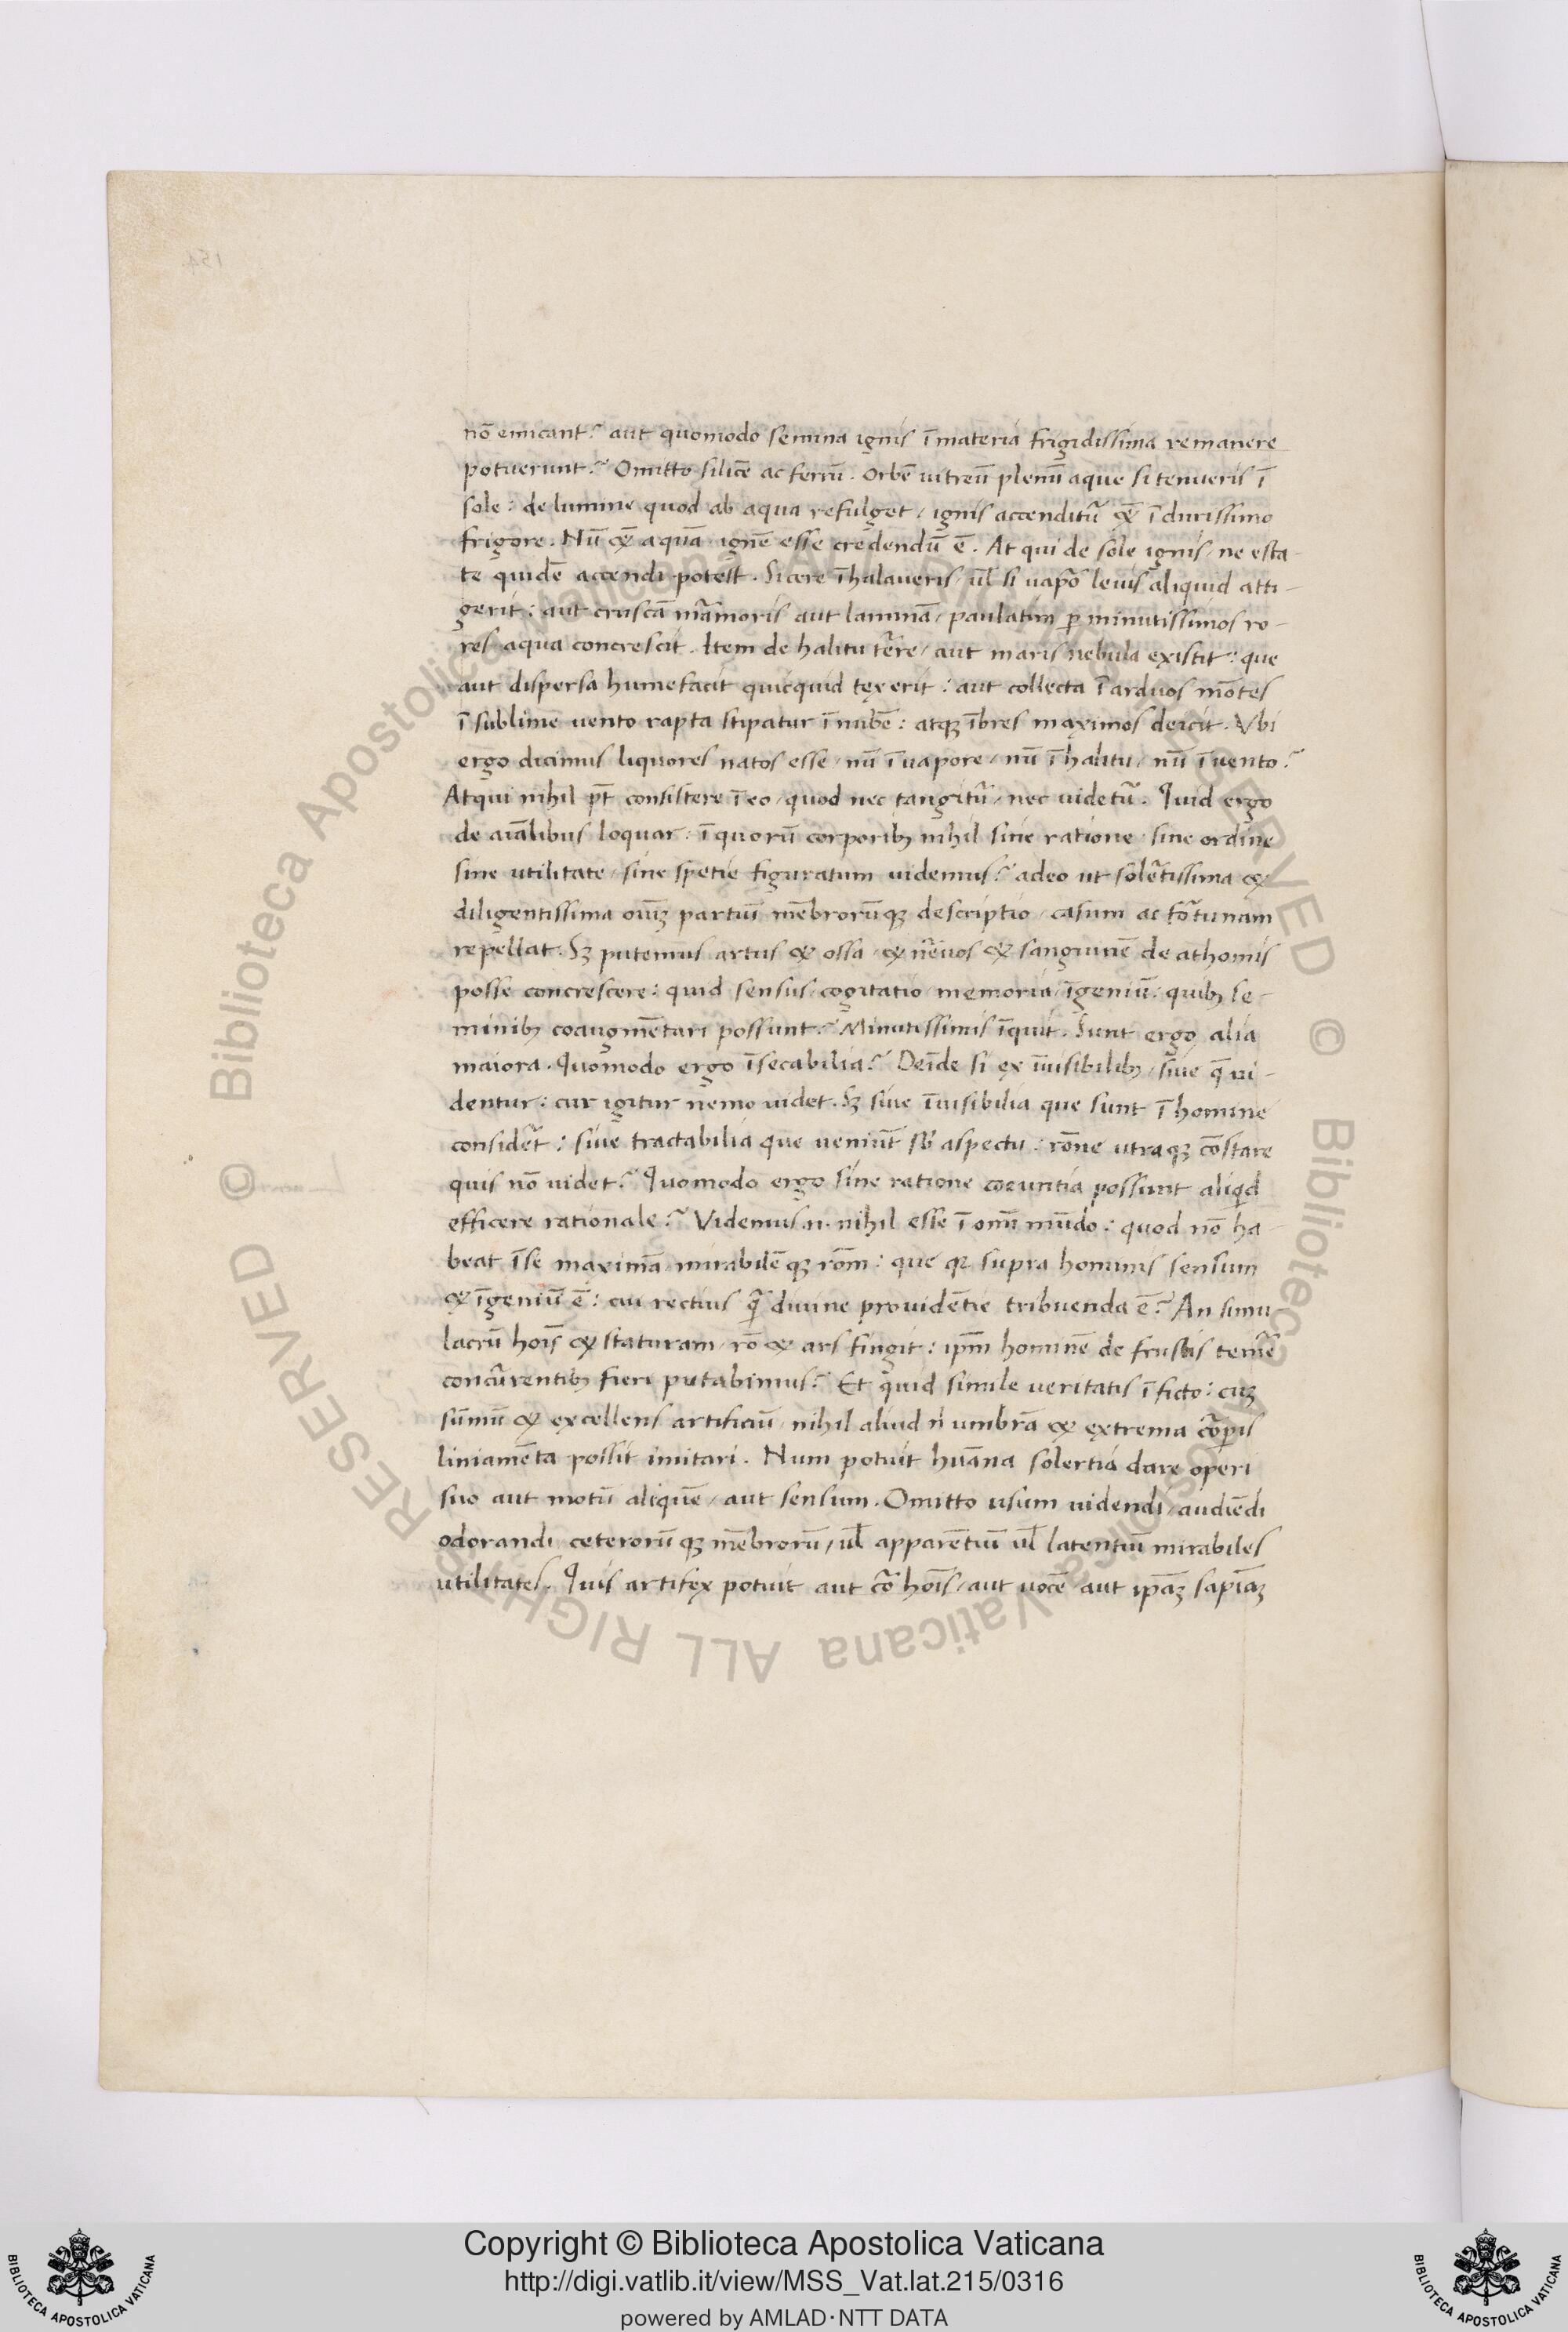 nō emicant? aut quomodo semina ignis ī materia frigidissima remanere
potuerunt? Omitto silicē ac ferrū. Orbē uitreū plenū aque si tenueris ī
sole: de lumine quod ab aqua refulget, ignis accenditur̄ & ī durissimo
frigore. Nū & aquā ignē esse credendū ē. At qui de sole ignis, ne esta-
te quidē accendi potest. Si cere īhalaueris, ul̄ si uapor̄ leuis aliquid atti-
gerit: aut crustā mārmoris aut laminā, paulatim ꝑ minutissimos ro-
res aqua concrescit. Item de halitu tēre, aut maris nebula existit: que
aut dispersa humefacit quicquid texerit: aut collecta ī arduos mōtes
ī sublime uento rapta stipatur ī nubē: atqꝫ ībres maximos deicit. Vbi
ergo dicimus liquores natos esse, nū ī uapore, nū ī halitu, nū ī uento?
Atqui nihil pt̄ consistere ī eo, quod nec tangitur̄, nec uidetur̄. Quid ergo
de aīalibus loquar: ī quorū corporibꝫ nihil sine ratione, sine ordine
sine utilitate, sine spetie figuratum uidemus? adeo ut solertissima &
diligentissima oīuꝫ partiū mēbrorūqꝫ descriptio, casum ac fortunam
repellat. Sꝫ putemus artus & ossa, & neruos & sanguinē de athomis
posse concrescere: quid sensus, cogitatio, memoria, īgeniū: quibꝫ se-
minibꝫ coaugmētari possunt? Minutissimis īquit. Sunt ergo alia
maiora. Quomodo ergo īsecabilia? Deīde si ex īuisibilibꝫ, siue q̄ ui-
dentur: cur igitur nemo uidet. Sꝫ siue īuisibilia que sunt ī homine
consideret: siue tractabilia que ueniūt sb̄ aspectu: rōne utraqꝫ cōstare
quis nō uidet? Quomodo ergo sine ratione coeuntia possunt aliqid
efficere rationale? Videmus .n. nihil esse ī omī mūdo: quod nō ha-
beat ī se maximā mirabilēqꝫ rōm: que qꝛ supra hominis sensum
& īgeniū ē: cui rectius q̄ diuine prouidētie tribuenda ē? An simu-
lacrū hoīs & staturam, rō & ars fingit: ipm̄ hominē de frustis temere
concurrentibꝫ fieri putabimus? Et quid simile ueritatis ī ficto: cuꝫ
sūmū & excellens artificiū, nihil aliud n̄ umbrā & extrema corꝑis
liniamēta possit imitari. Num potuit huāna solertia dare operi
suo aut motū aliquē, aut sensum. Omitto usum uidendi, audiēdi
odorandi ceterorūqꝫ mēbrorū, ul̄ apparētiū ul̄ latentiū mirabiles
utilitates. Quis artifex potuit aut cor̄ hoīs, aut uocē aut ipāꝫ sapīaꝫ
Copyright © Biblioteca Apostolica Vaticana
http://digi.vatlib.it/view/MSS_Vat.lat.215/0316
powered by AMLAD·NTT DATA